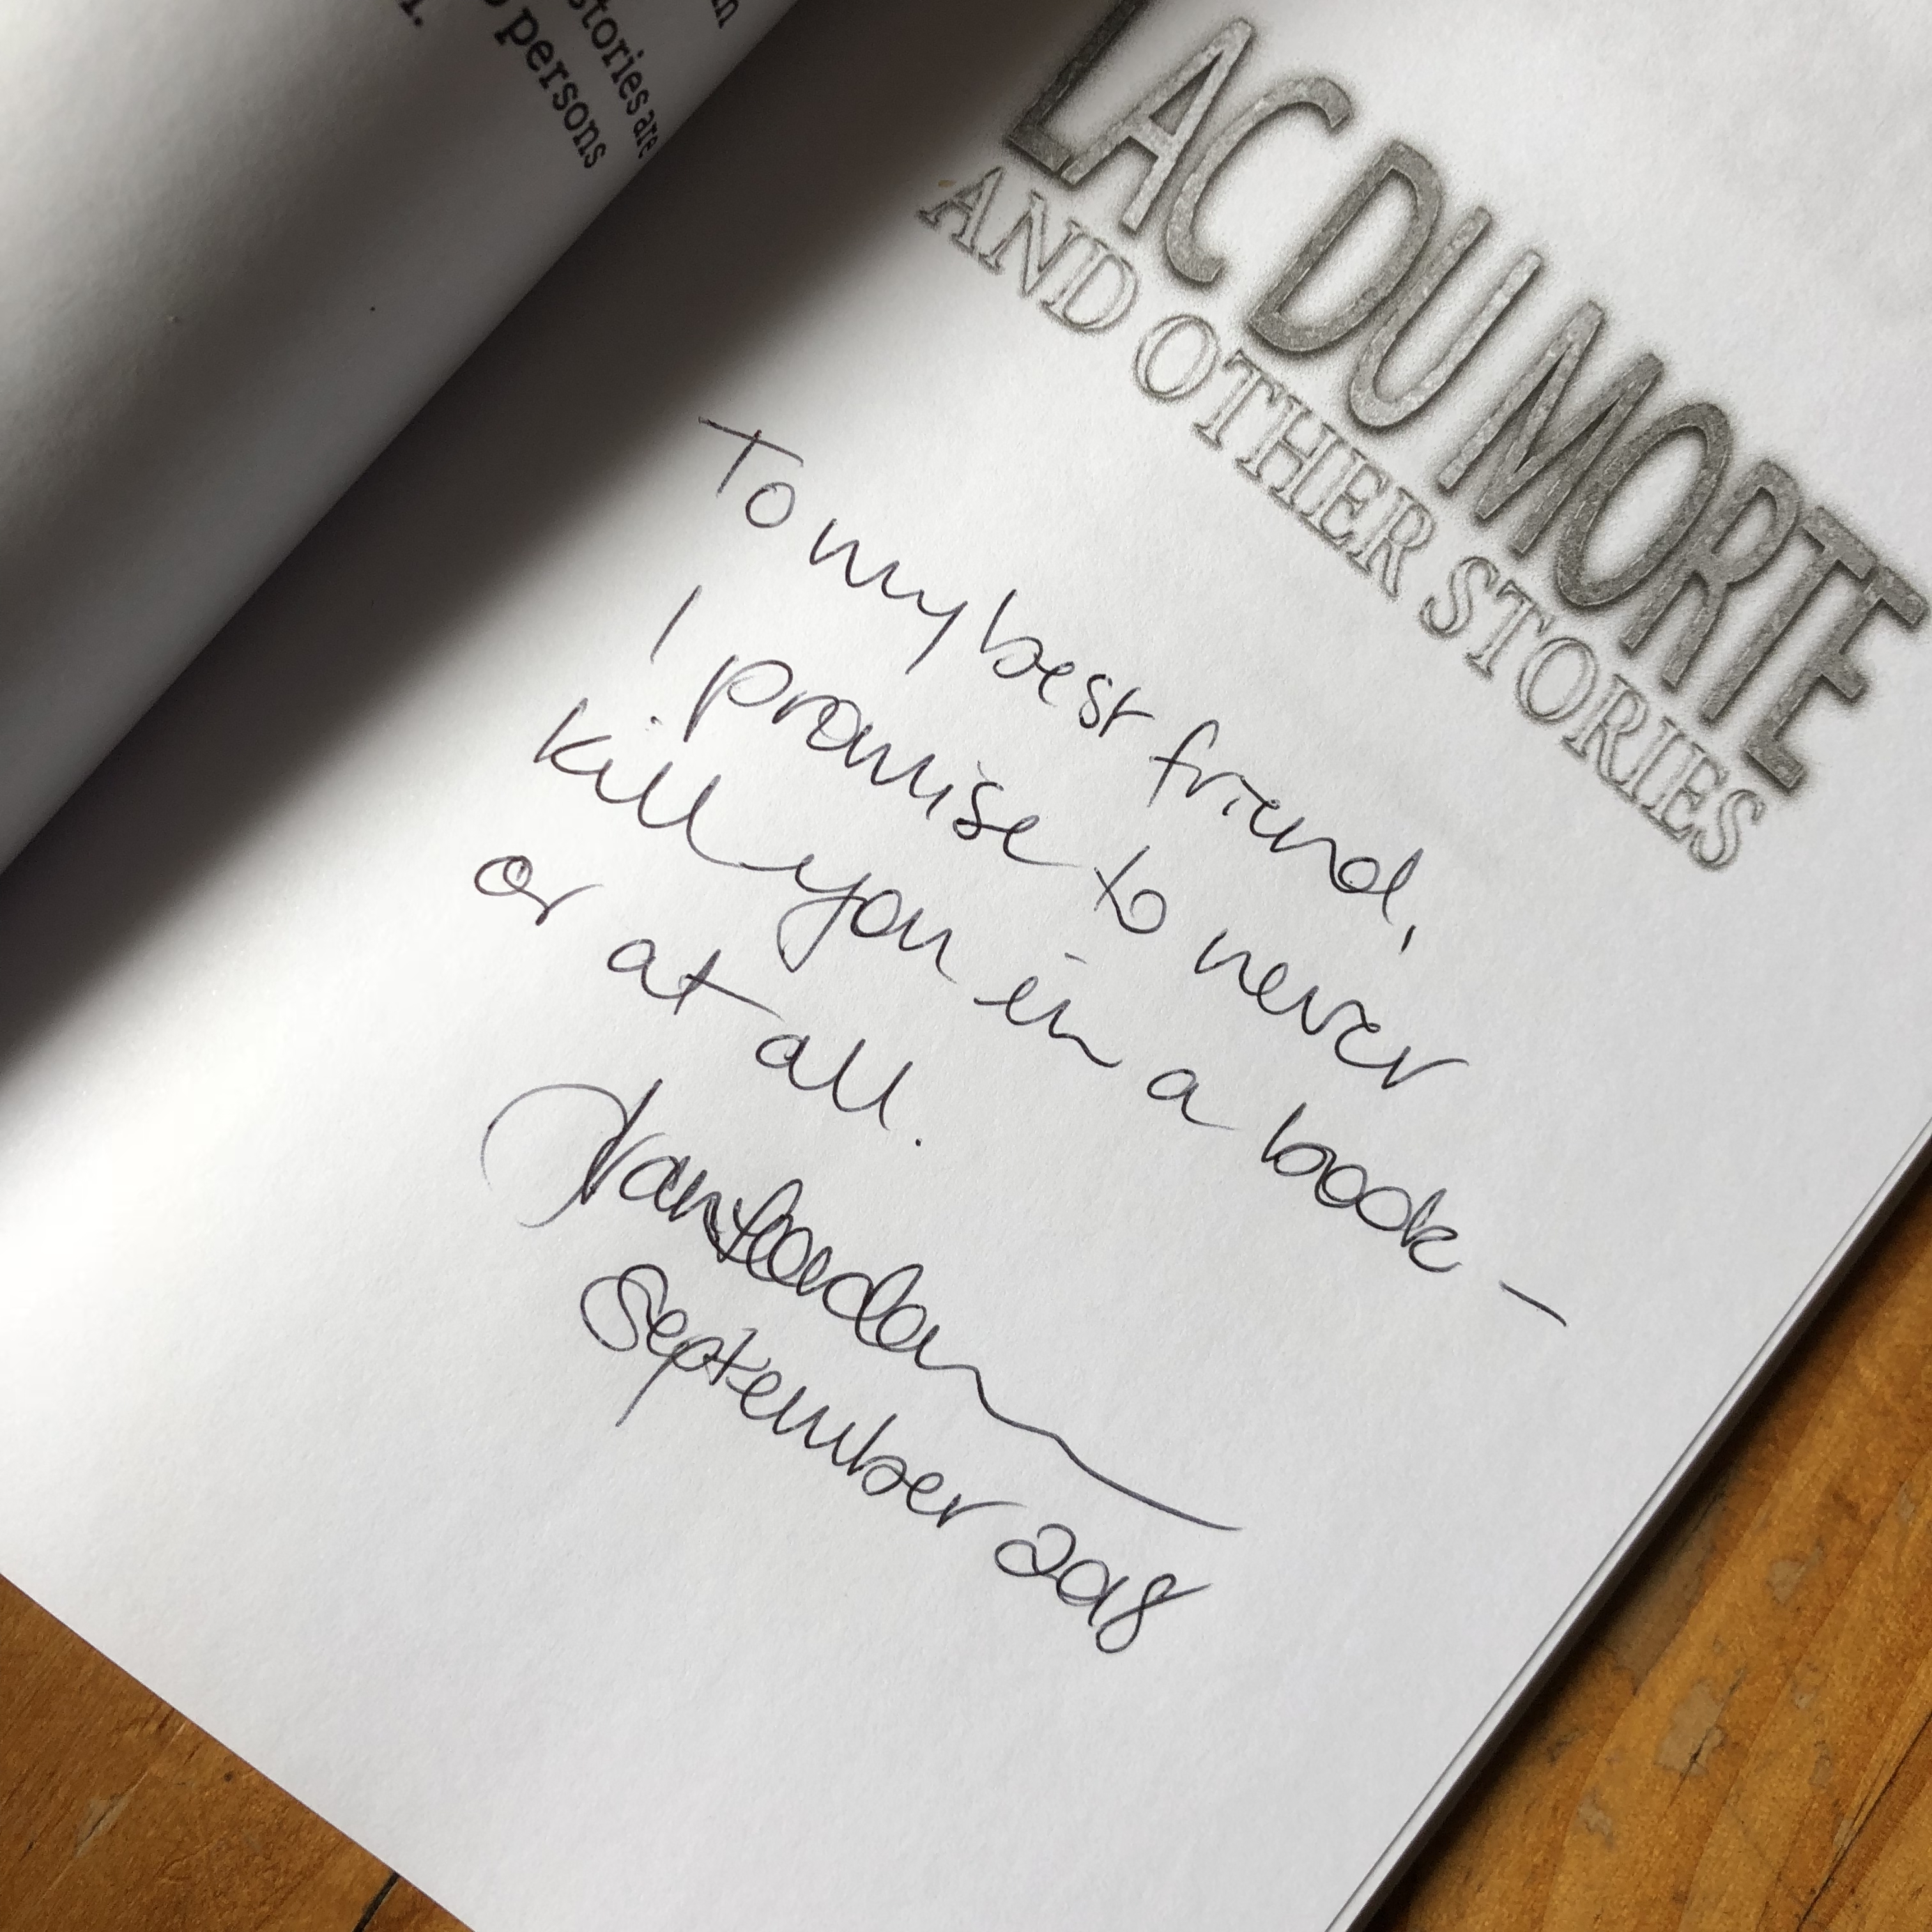 in
stories are
persons
LAC DU MORTE
AND OTHER STORIES
To my best friend,
I promise to never
kill you in a book –
or at all.
September 2018